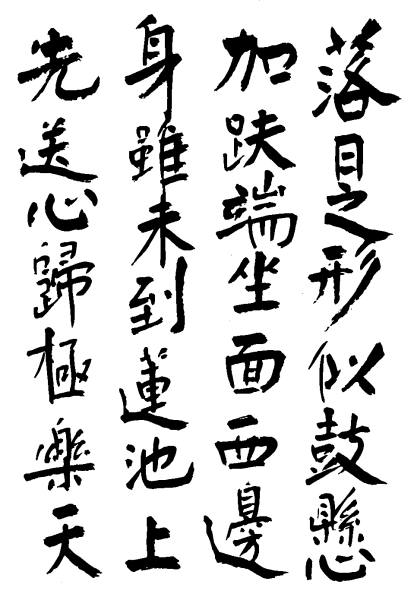 落日之形似鼓懸
加趺端坐面西邊
身雖未到蓮池上
先送心歸極樂天